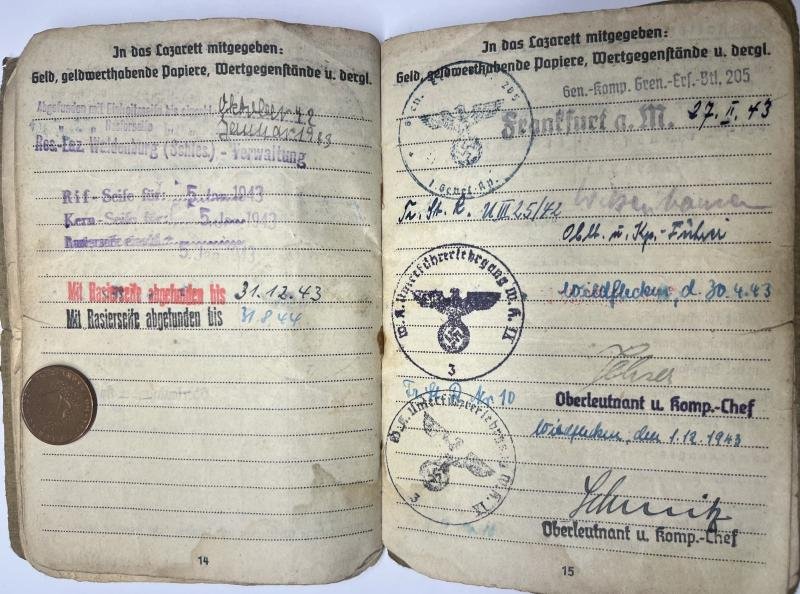 In das Lazarett mitgegeben:
Geld, geldwerthabende Papiere, Wertgegenstände u. dergl.
Abgefunden mit Einheitsseife bis
Oktober 42
Rasierseife
Januar 1943
Res.-Laz. Waldenburg (Schles.) - Verwaltung
Rif - Seife für: 5. Jan. 1943
Kern - Seife für: 5. Jan. 1943
Rasierseife
5. Jan. 1943
Mit Rasierseife abgefunden bis 31.12.43
Mit Rasierseife abgefunden bis 31.8.44
14
In das Lazarett mitgegeben:
Geld, geldwerthabende Papiere, Wertgegenstände u. dergl.
Gen.-Komp. Gren.-Ers.-Btl. 205
Frankfurt a. M. 27. II. 43
205
Tr. St. R. U III 25/42
Oblt. u. Kp.-Führer
W. K. Unterführerlehrgang W. K. IX
3
Wildflecken, d. 30.4.43
Oberleutnant u. Komp.-Chef
Tr. St. R. Nr. 10
Unterführerlehrgang W. K. IX
3
Wildflecken, den 1.12.1943
Schmitz
Oberleutnant u. Komp.-Chef
15